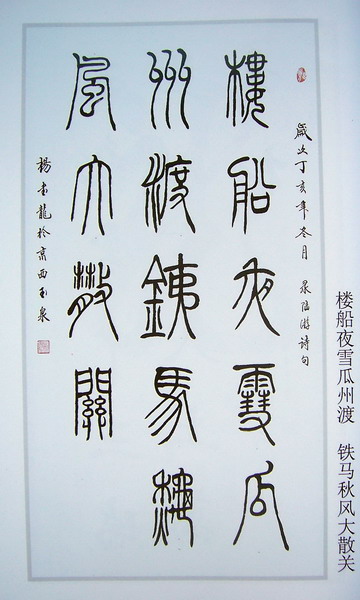 楼船夜雪瓜州渡　铁马秋风大散关
歲次丁亥年冬月　录陆游詩句
樓船夜雪瓜
州渡銕馬秋
風大散關
楊書龍於京西玉泉